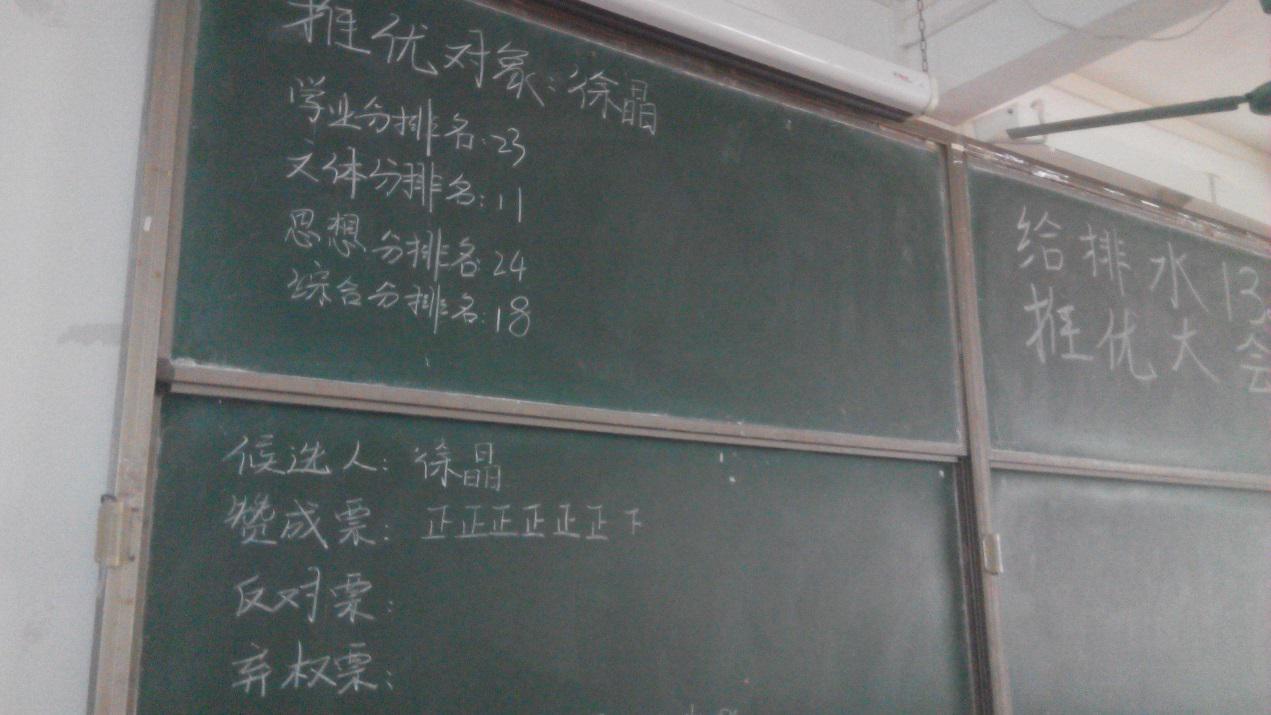 推优对象:徐晶
学业分排名:23
文体分排名:11
思想分排名:24
综合分排名:18
候选人:徐晶
赞成票:正正正正正正下
反对票:
弃权票:
给排水13
推优大会